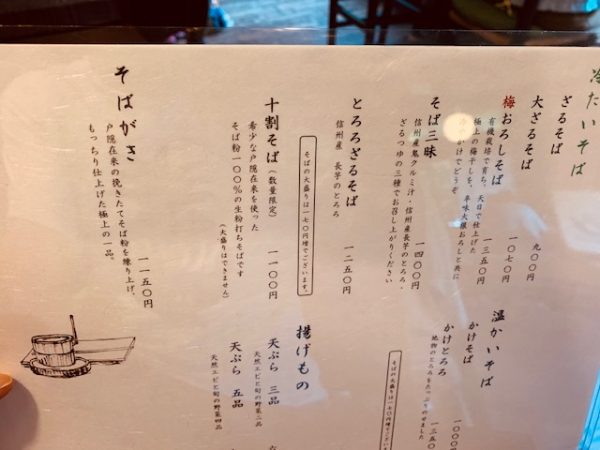 冷たいそば
ざるそば 九〇〇円
大ざるそば 一〇七〇円
梅おろしそば 一三五〇円
有機栽培で育ち、天日で仕上げた
極上の梅干しを、辛味大根おろしと共に
かけてどうぞ
そば三昧 一四〇〇円
信州産鬼クルミ汁・信州産長芋のとろろ、
ざるつゆの三種でお召し上がりください
とろろざるそば 一二五〇円
信州産 長芋のとろろ
そばの大盛りは一七〇円増でございます。
十割そば（数量限定） 一一〇〇円
希少な戸隠在来を使った
そば粉一〇〇％の生粉打ちそばです
（大盛りはできません）
そばがき 一一五〇円
戸隠在来の挽きたてそば粉を練り上げ、
もっちり仕上げた極上の一品。
温かいそば
かけそば 一〇〇〇
かけとろろ 一三五〇
地物のとろろをたっぷりのせました
そばの大盛りは一七〇円増でござい
揚げもの
天ぷら 三品
天然エビと旬の野菜二品
天ぷら 五品
天然エビと旬の野菜四品